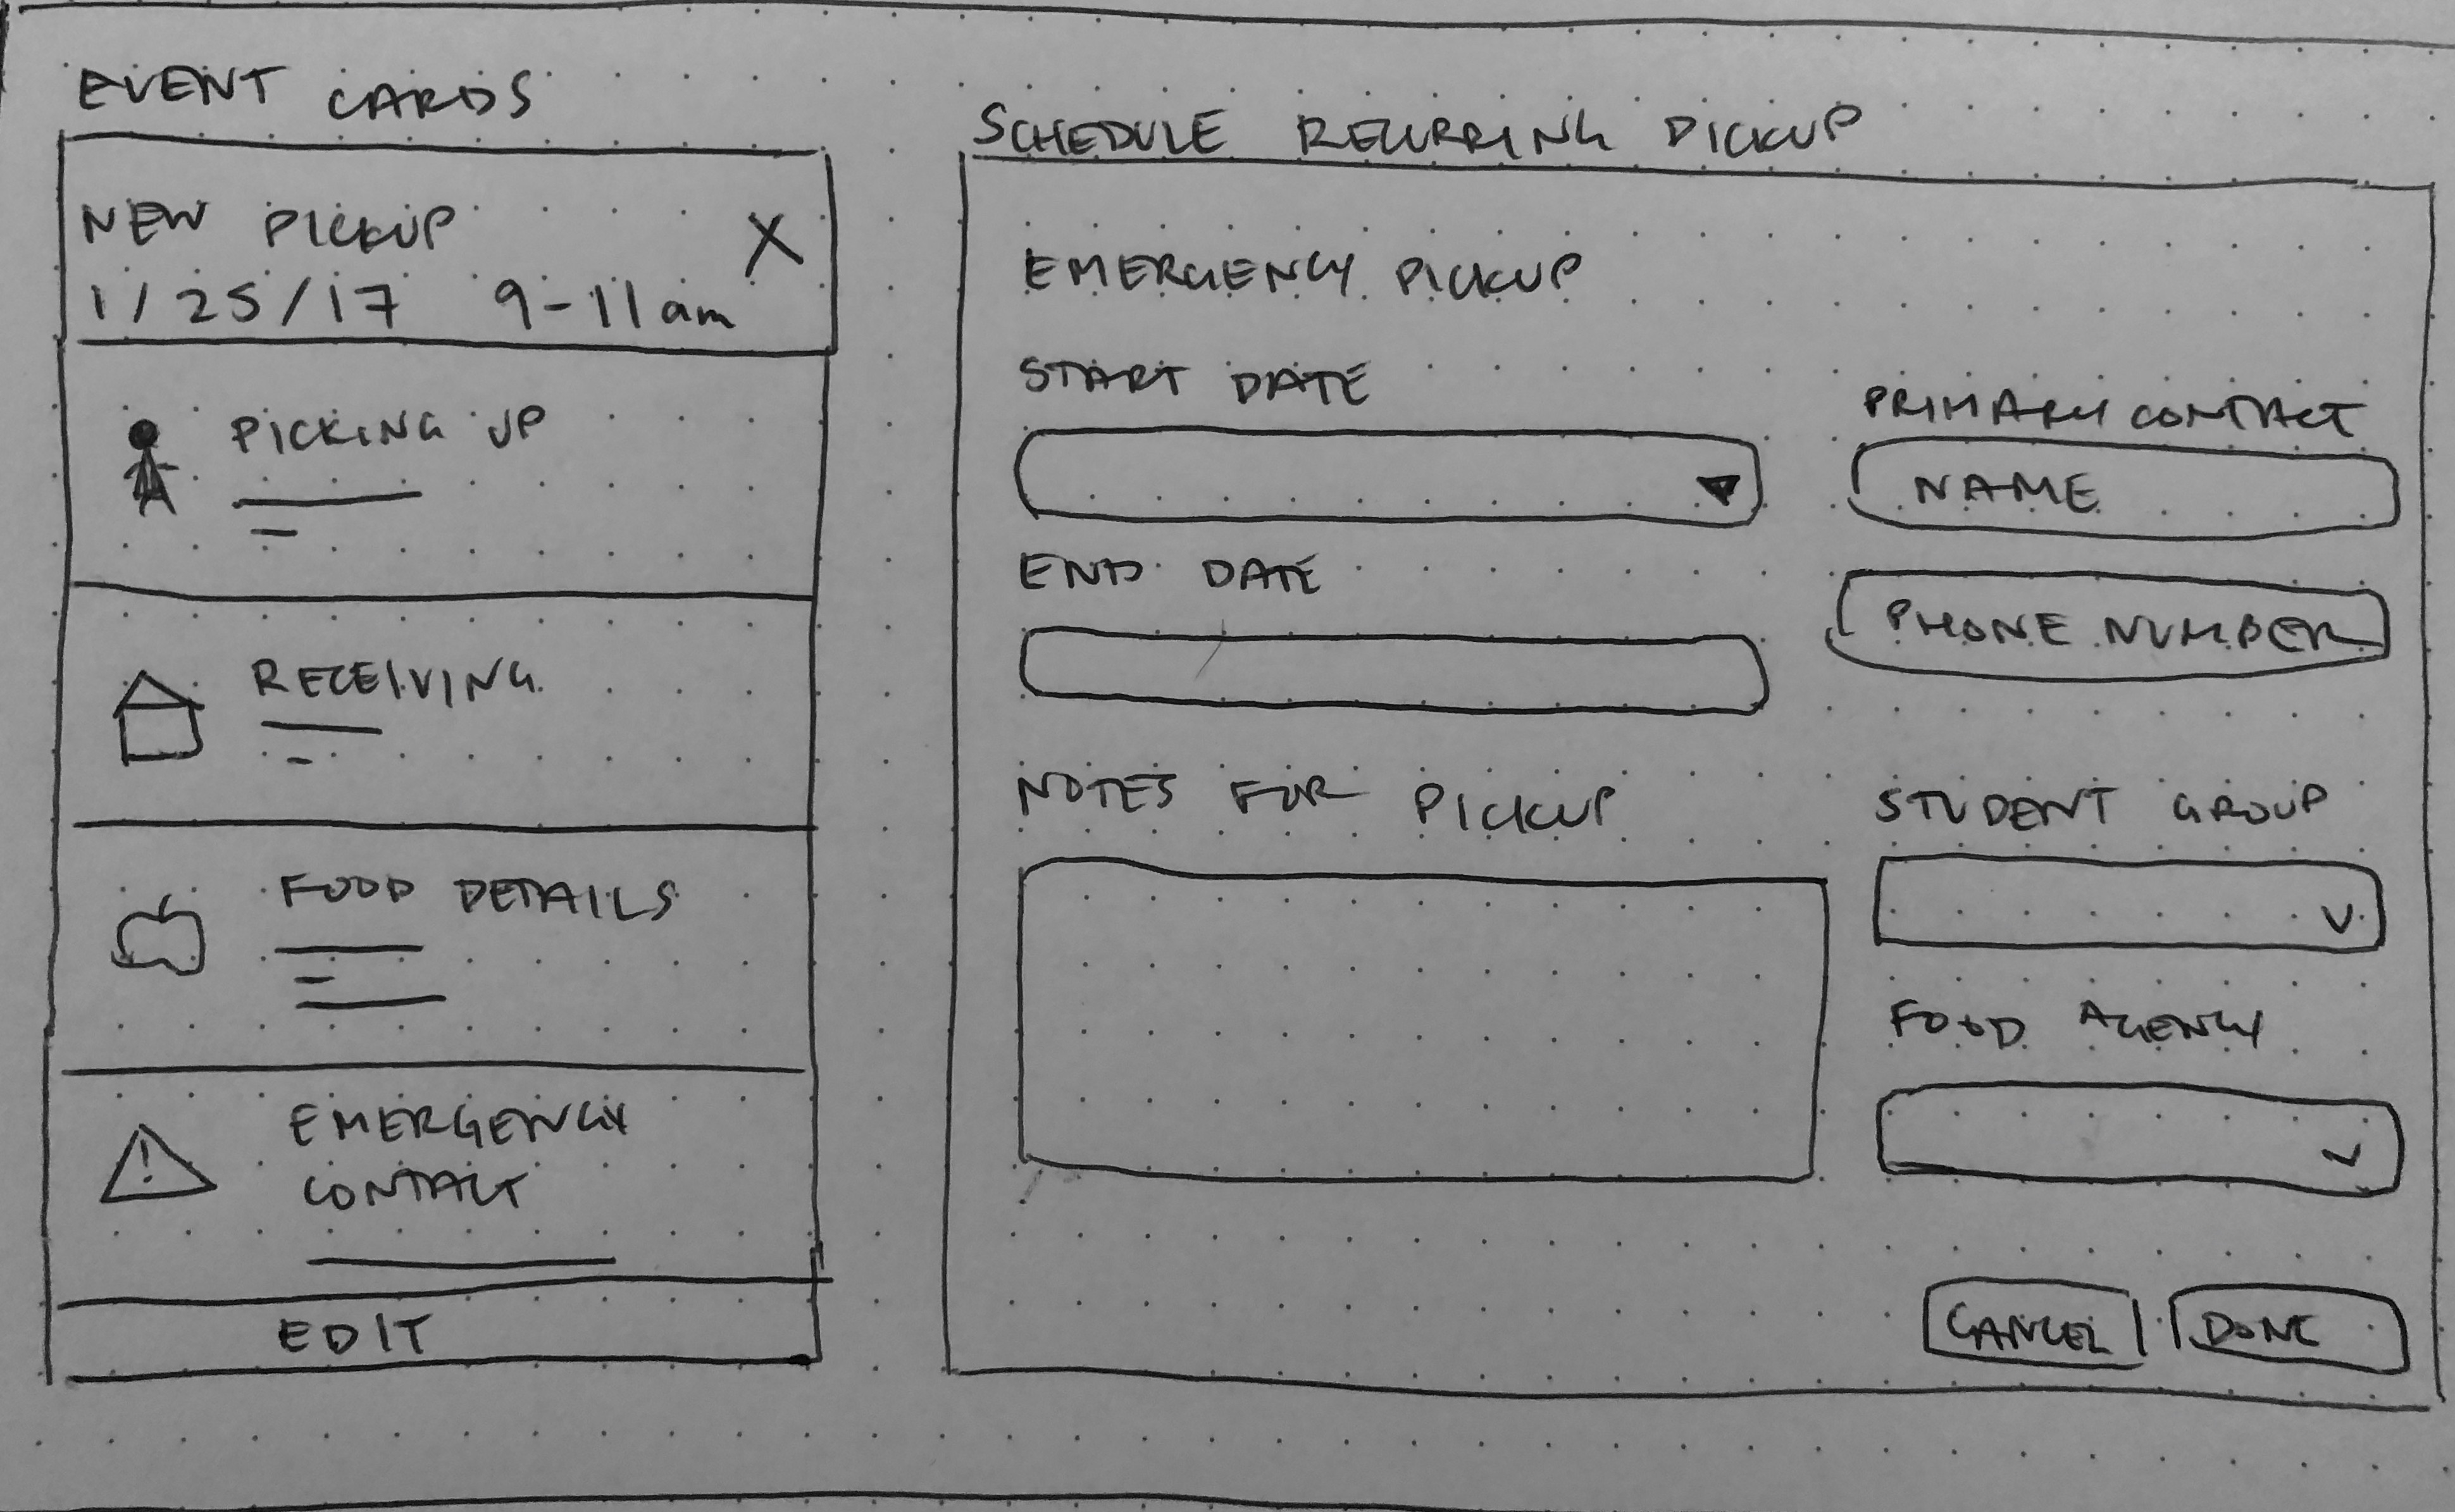 EVENT CARDS
NEW PICKUP X
1/25/17 9-11am
PICKING UP
RECEIVING
FOOD DETAILS
!
EMERGENCY
CONTACT
EDIT
SCHEDULE RECURRING PICKUP
EMERGENCY PICKUP
START DATE
END DATE
NOTES FOR PICKUP
PRIMARY CONTACT
NAME
PHONE NUMBER
STUDENT GROUP
FOOD AGENCY
CANCEL
DONE